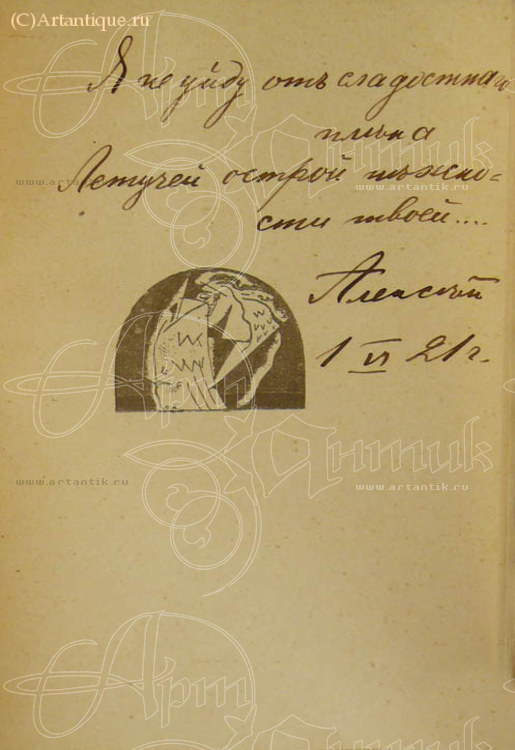 (C)Artantique.ru
Я не уйду отъ сладостнаго
плѣна
Летучей острой нѣжно=
сти твоей....
Алексѣй
1 VI 21 г.
Арт
Антик
www.artantik.ru
www.artantik.ru
Арт
Антик
www.artantik.ru
www.artantik.ru
Арт
Антик